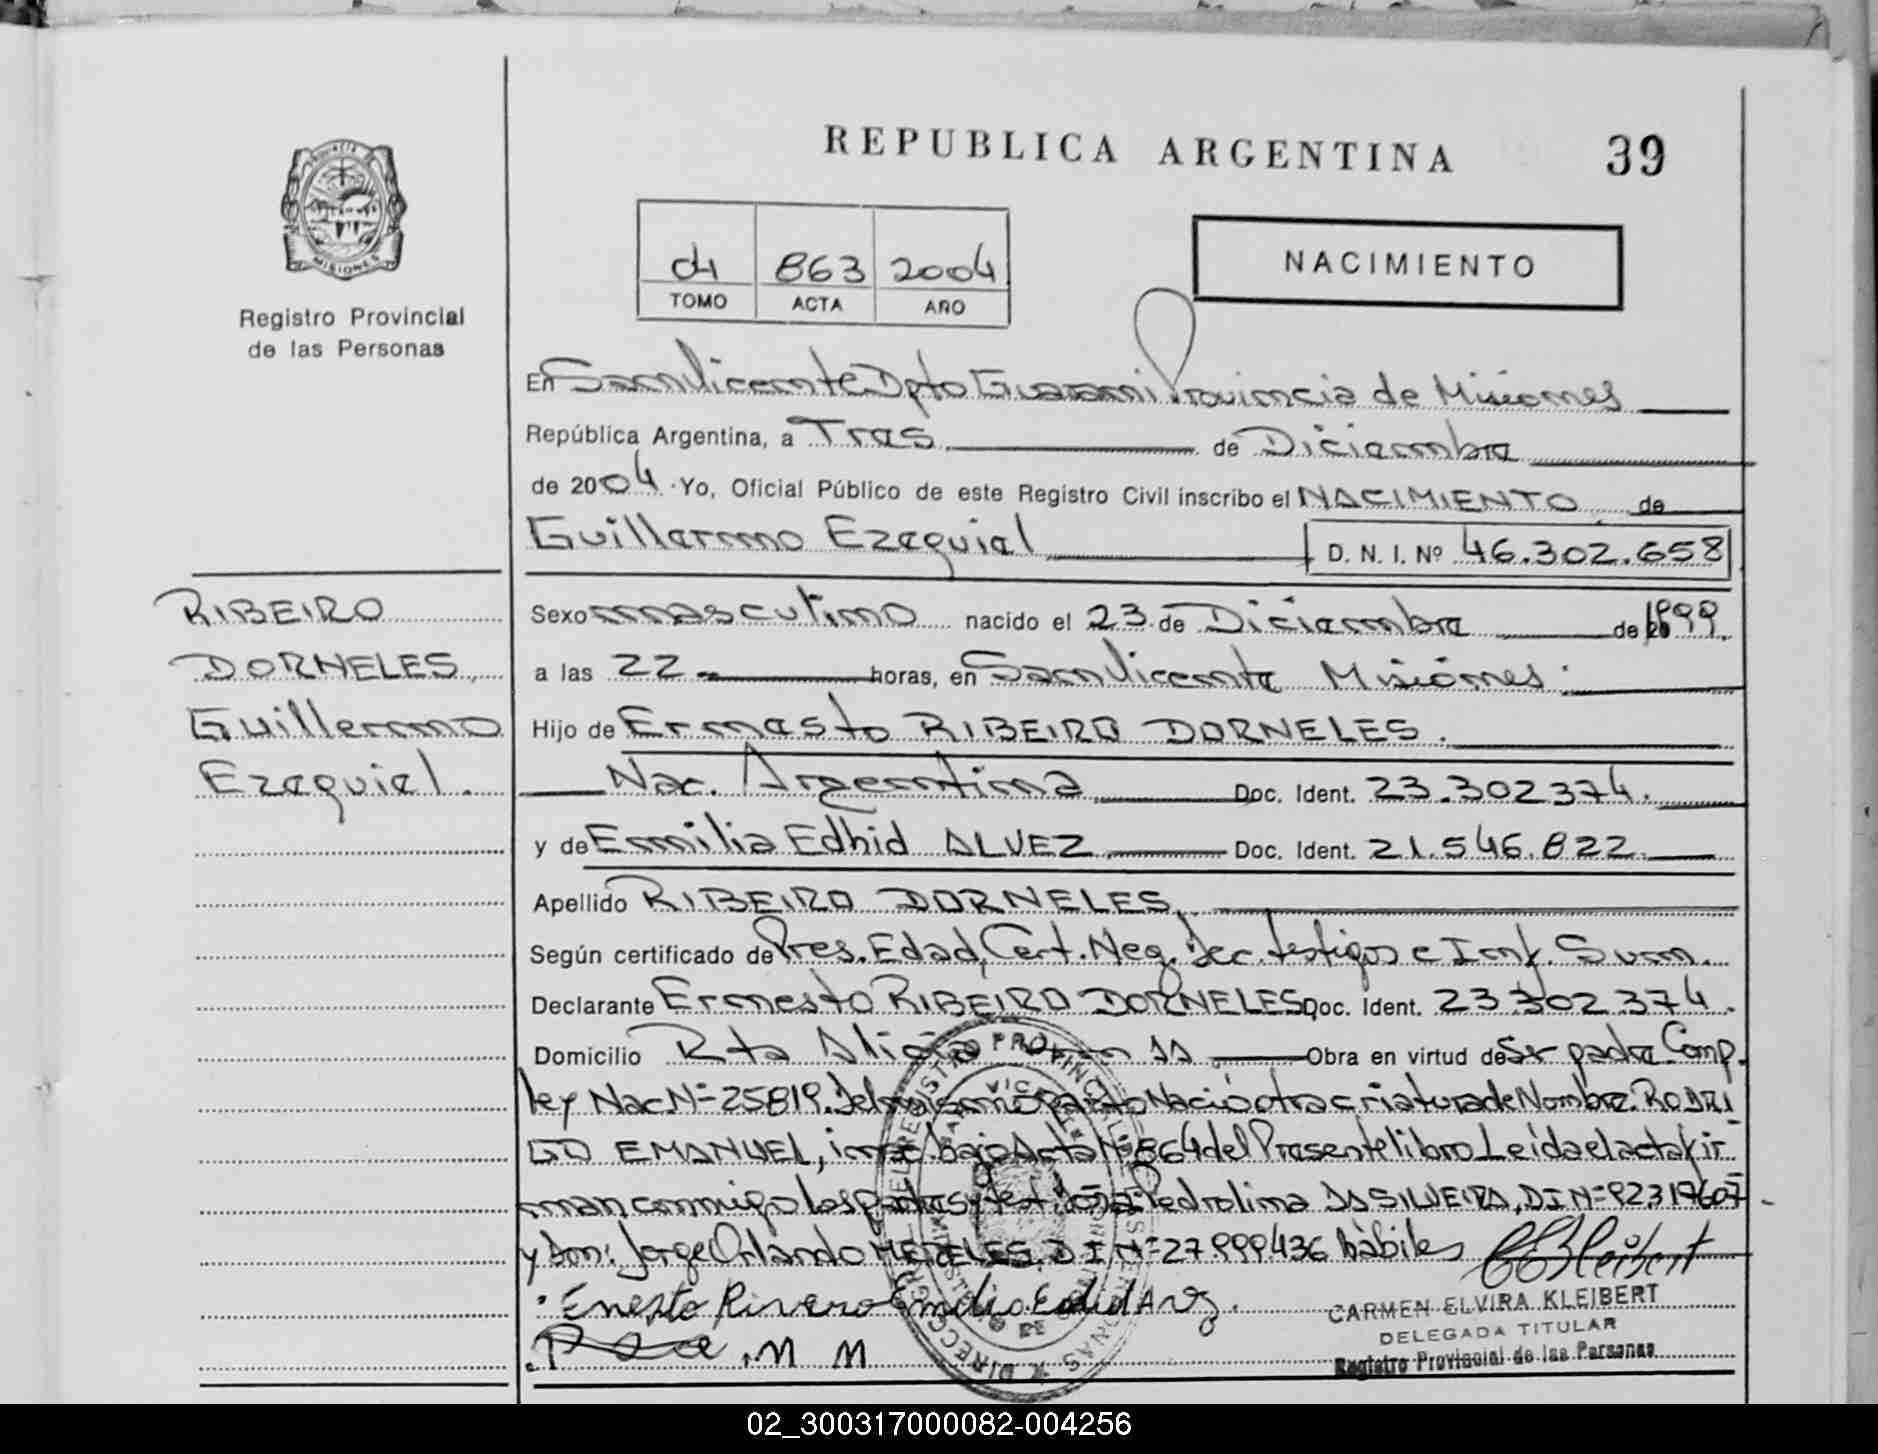 REPUBLICA ARGENTINA
39
PROVINCIA DE MISIONES
Registro Provincial
de las Personas
d1 863 2004
TOMO ACTA AÑO
NACIMIENTO
En San Vicente Dpto Guarani Provincia de Misiones
República Argentina, a Tres de Diciembre
de 2004. Yo, Oficial Público de este Registro Civil inscribo el NACIMIENTO de
Guillermo Ezequiel D. N. I. Nº 46.302.658
RIBEIRO
DORNELES
Guillermo
Ezequiel.
Sexo masculino nacido el 23 de Diciembre de 1999.
a las 22 horas, en San Vicente Misiones.
Hijo de Ernesto RIBEIRO DORNELES.
Nac. Argentina Doc. Ident. 23.302374.
y de Emilia Edhid ALVEZ Doc. Ident. 21.546.822.
Apellido RIBEIRO DORNELES,
Según certificado de Pres. Edad, Cert. Neg. Dec. testigos e Inf. Sum.
Declarante Ernesto RIBEIRO DORNELES Doc. Ident. 23.302.374.
Domicilio Rta Alicia Obra en virtud de Ser padre Comp.
ley Nac. Nº 25819. Del mismo Parto Nació otra criatura de Nombre: RODRI
GO EMANUEL, insc. bajo Acta Nº 864 del Presente libro Leída el acta fir
man conmigo los padres y test. Doña: Pedrolina DA SILVEIRA, DI Nº 92319607
y don: Jorge Orlando MERELES, D I Nº 27.999.436 hábiles
Enesto Rivero Emilia Edid Alvez.
M M
CARMEN ELVIRA KLEIBERT
DELEGADA TITULAR
Registro Provincial de las Personas
02_300317000082-004256